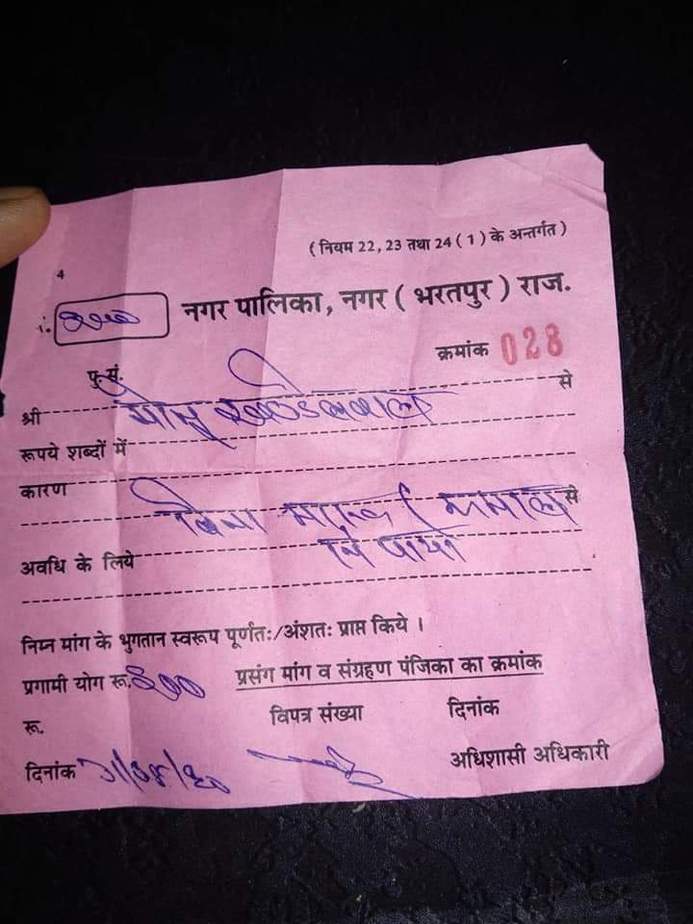 ( नियम 22, 23 तथा 24 ( 1 ) के अन्तर्गत )
4
नगर पालिका, नगर ( भरतपुर ) राज.
क्रमांक 028
पु. सं.
श्री मोनू खण्डेलवाल से
रूपये शब्दों में
कारण
बिना मास्क / से
अवधि के लिये
निम्न मांग के भुगतान स्वरूप पूर्णतः/अंशतः प्राप्त किये ।
प्रगामी योग रू. प्रसंग मांग व संग्रहण पंजिका का क्रमांक
रू. विपत्र संख्या दिनांक
दिनांक अधिशासी अधिकारी